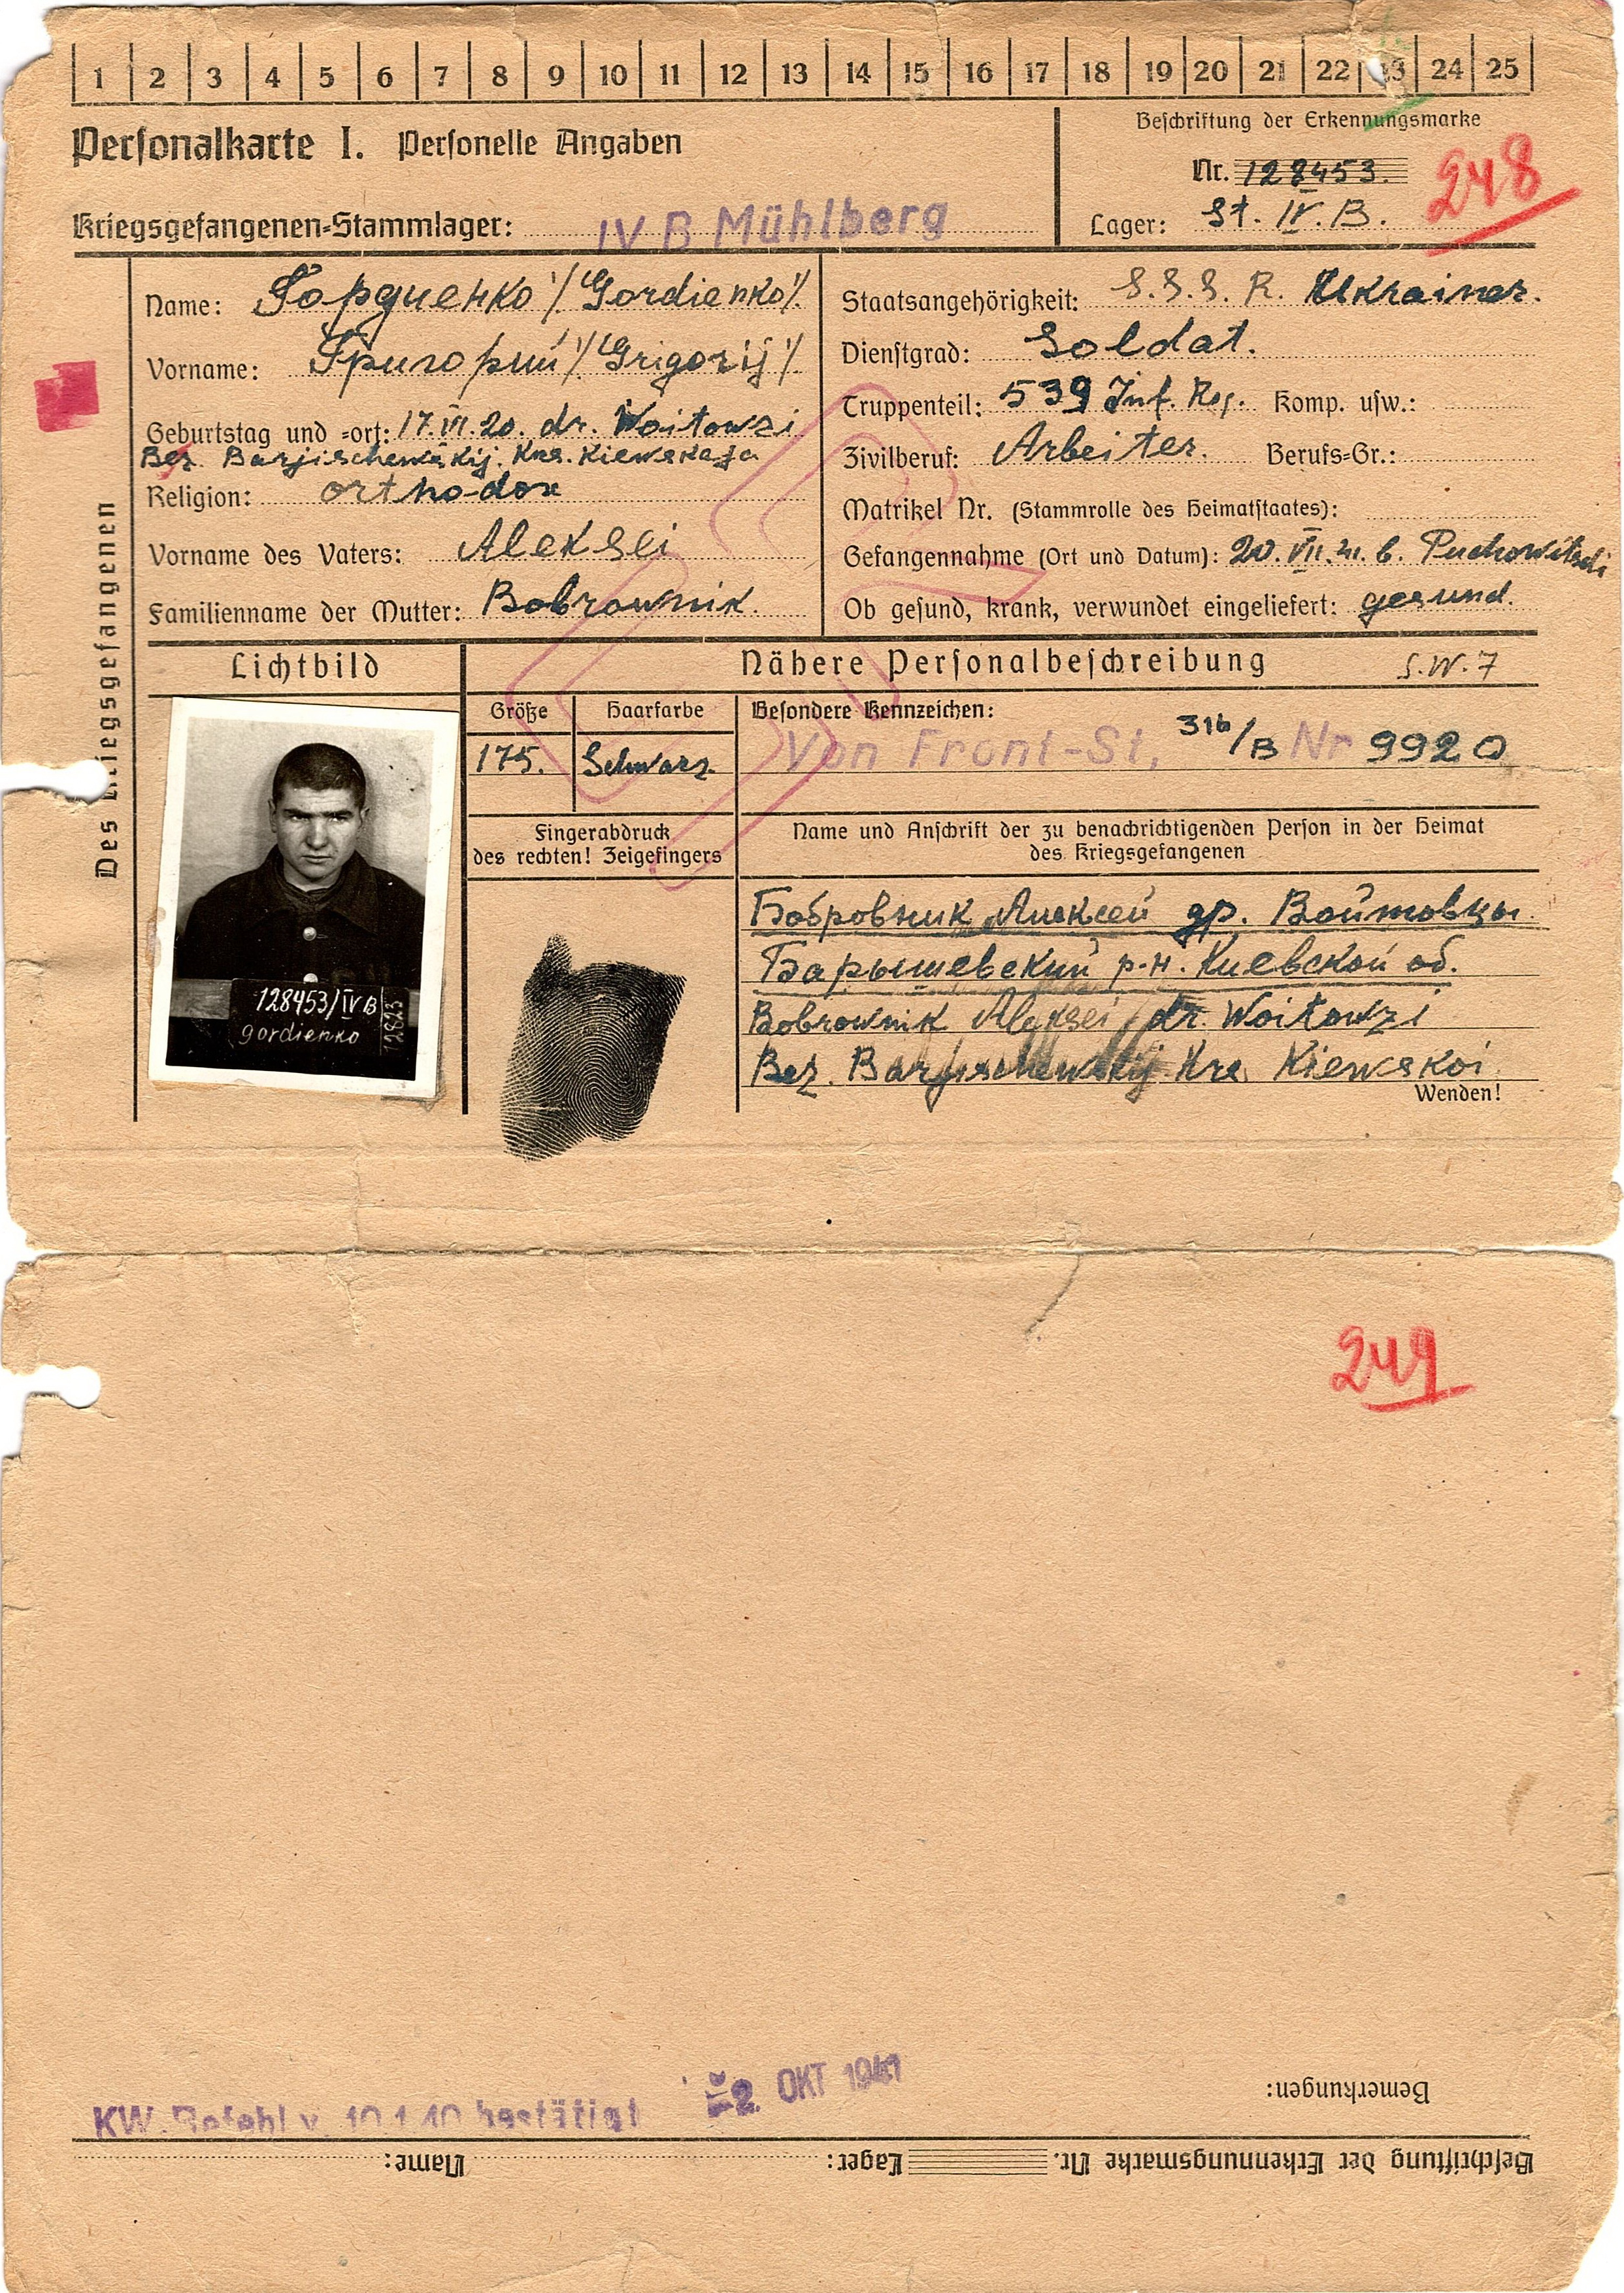 1 2 3 4 5 6 7 8 9 10 11 12 13 14 15 16 17 18 19 20 21 22 23 24 25
Personalkarte I. Personelle Angaben
Beschriftung der Erkennungsmarke
Nr. 128453.
248
Kriegsgefangenen-Stammlager: IV B Mühlberg
Lager: St. IV. B.
Des Kriegsgefangenen
Name: Гордиенко /Gordienko/.
Vorname: Григорий /Grigorij/.
Geburtstag und =ort: 17.VI.20. dr. Woitowzi
Bez. Barjischewskij. Krs. Kiewskaja
Religion: orthodox
Vorname des Vaters: Aleksei
Familienname der Mutter: Bobrownik.
Staatsangehörigkeit: S.S.S.R. Ukrainer.
Dienstgrad: Soldat.
Truppenteil: 539 Inf. Reg. Komp. usw.:
Zivilberuf: Arbeiter. Berufs=Gr.:
Matrikel Nr. (Stammrolle des Heimatstaates):
Gefangennahme (Ort und Datum): 20.VII.41. b. Puchowitschi
Ob gesund, krank, verwundet eingeliefert: gesund.
Lichtbild
Nähere Personalbeschreibung S.W.7
Größe
175.
Haarfarbe
Schwarz.
Besondere Kennzeichen:
Von Front-St, 316/B Nr 9920
Fingerabdruck
des rechten! Zeigefingers
Name und Anschrift der zu benachrichtigenden Person in der Heimat
des Kriegsgefangenen
128453/IV B
gordienko
12823
Бобровник Алексей др. Войтовцы.
Барышевский р-н. Киевской об.
Bobrownik Aleksei dr. Woitowzi
Bez. Barjischewskij Krs Kiewskoi.
Wenden!
249
Bemerkungen:
KW. Befehl v. 10.1.40 bestätigt
2. OKT 1941
Beschriftung der Erkennungsmarke Nr. Lager: Name: